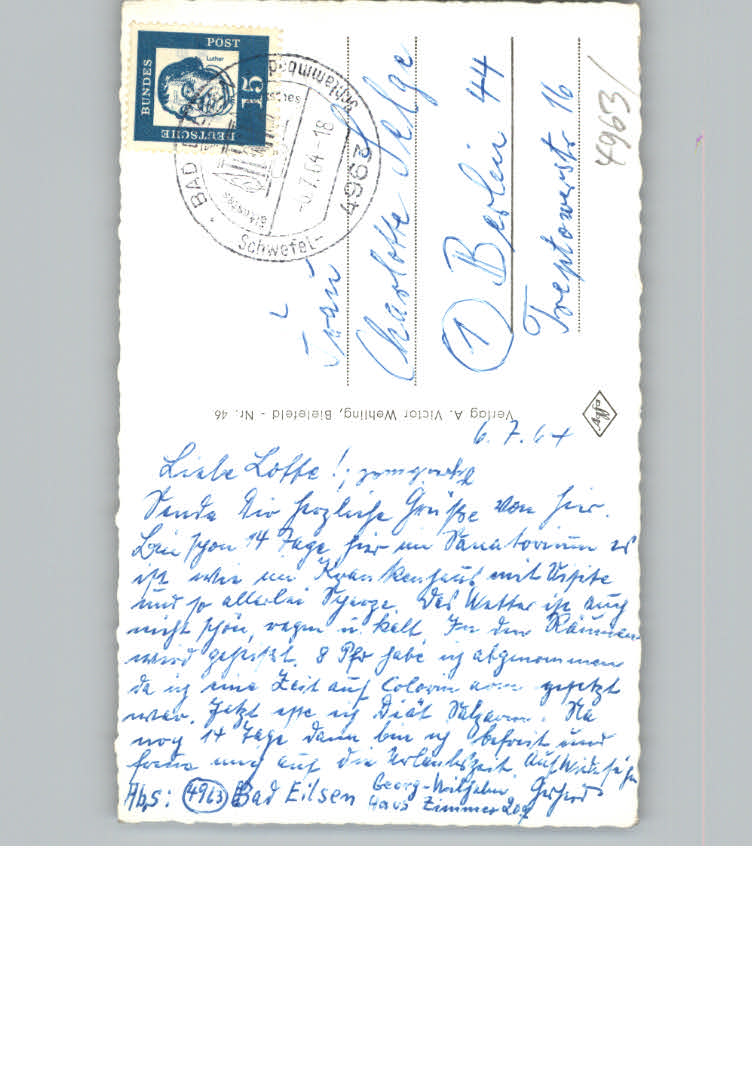 DEUTSCHE BUNDES POST
Luther
15
BAD
Schlammbad
4963
-6.7.64-18
Schwefel-
Frau
Charlotte Selge
(1) Berlin 44
Treptowerstr 16
4963/
Verlag A. Victor Wehling, Bielefeld - Nr. 46
Agfa
6.7.64
Liebe Lotte!,
Sende Dir herzliche Grüße von hier.
Bin schon 14 Tage hier im Sanatorium es
ist wie im Krankenhaus mit Visite
und so allerlei Scherze. Das Wetter ist auch
nicht schön, regen u. kalt. In den Räumen
wird geheizt. 8 Pfd habe ich abgenommen
da ich eine Zeit auf Calorien arm gesetzt
war. Jetzt esse ich Diät Salzarm. Na
noch 14 Tage dann bin ich befreit und
freue mich auf die Urlaubszeit. Auf Wiedersehn
Gerhard
Abs: (4963) Bad Eilsen Georg-Wilhelm
Haus Zimmer 209